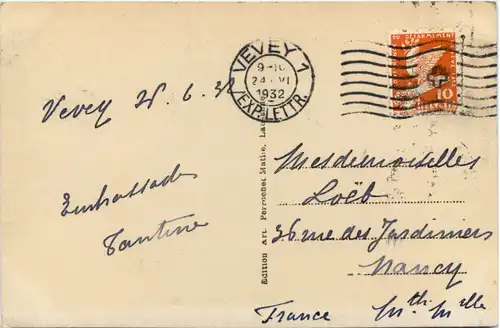 VEVEY 1
9-10
24. VI
1932
EXP. LETTR.
DU DÉSARMEMENT
10
HELVETIA
Vevey 6.32
Embrassades
Tantine
Edition Art. Perrochet Mathe, Lau
Mesdemoiselles
Loëb
36 rue des Jardiniers
Nancy
France Mthe Mlle